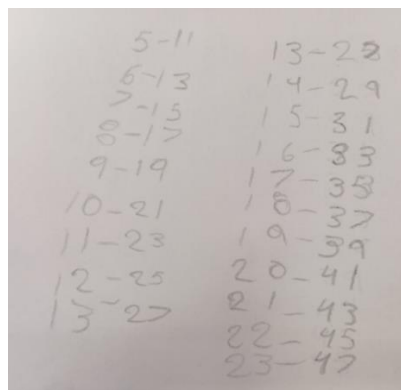 5-11
6-13
7-15
8-17
9-19
10-21
11-23
12-25
13-27
13-28
14-29
15-31
16-33
17-35
18-37
19-39
20-41
21-43
22-45
23-47